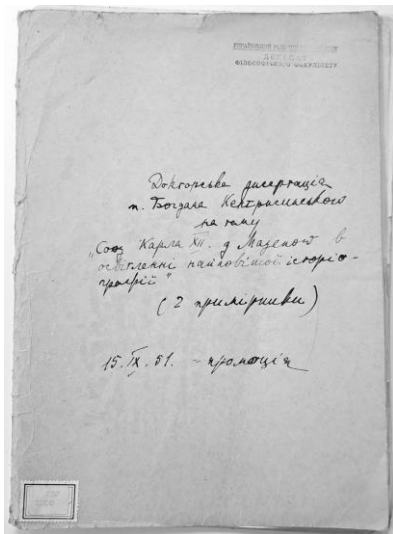 ДЕКАНАТ
ФІЛОСОФІЧНОГО ФАКУЛЬТЕТУ
Докторська дисертація
п. Богдана Кентржинського
на тему
„Союз Карла XII. з Мазепою в
освітленні найновішої історіо-
графії"
( 2 примірники )
15. IX. 51. - промоція